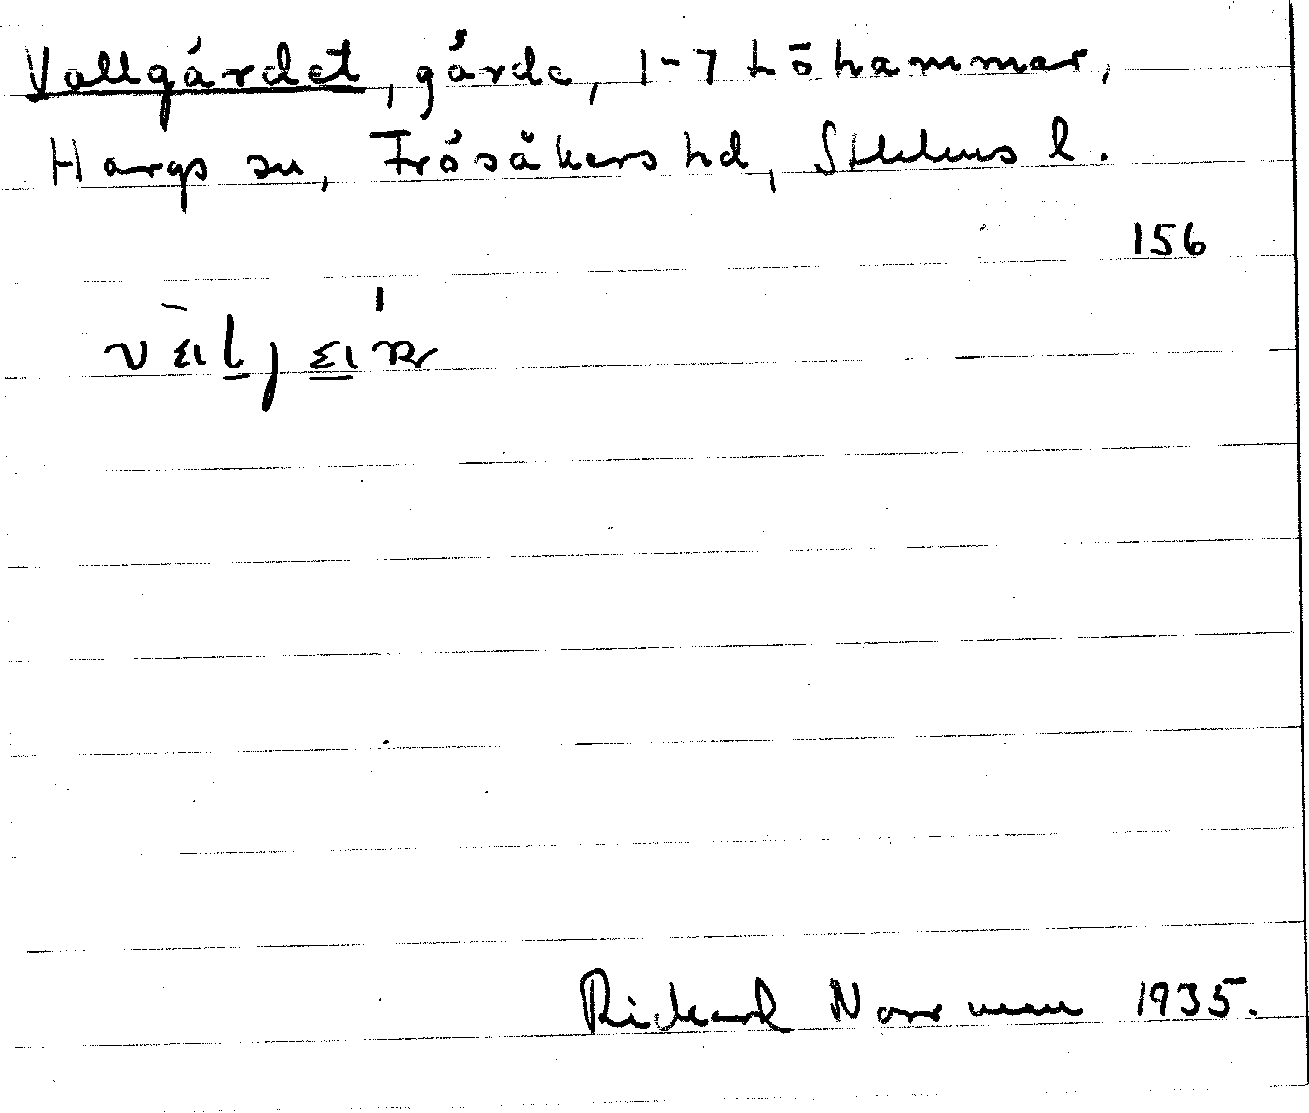 Vallgärdet, gärde, 1-7 Löhammar,
Hargs sn, Frösåkers hd, Sthlms l.
156
Rickard Norrman 1935.